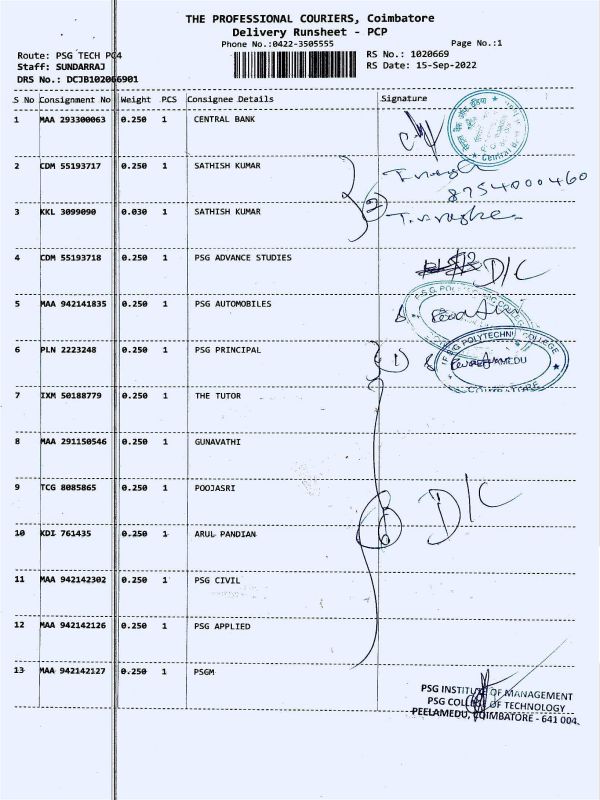 THE PROFESSIONAL COURIERS, Coimbatore
Delivery Runsheet - PCP
Phone No.:0422-3505555
Page No.:1
Route: PSG TECH PC4
RS No.: 1020669
Staff: SUNDARRAJ
RS Date: 15-Sep-2022
DRS No.: DCJB102066901
S No Consignment No Weight PCS Consignee Details Signature
1 MAA 293300063 0.250 1 CENTRAL BANK
2 CDM 55193717 0.250 1 SATHISH KUMAR
8754000460
3 KKL 3099090 0.030 1 SATHISH KUMAR
4 CDM 55193718 0.250 1 PSG ADVANCE STUDIES D/C
5 MAA 942141835 0.250 1 PSG AUTOMOBILES
6 PLN 2223248 0.250 1 PSG PRINCIPAL
PSG POLYTECHNIC COLLEGE
COIMBATORE
7 IXM 50188779 0.250 1 THE TUTOR
8 MAA 291150546 0.250 1 GUNAVATHI
9 TCG 8085865 0.250 1 POOJASRI D/C
10 KDI 761435 0.250 1 ARUL PANDIAN
11 MAA 942142302 0.250 1 PSG CIVIL
12 MAA 942142126 0.250 1 PSG APPLIED
13 MAA 942142127 0.250 1 PSGM
PSG INSTITUTE OF MANAGEMENT
PSG COLLEGE OF TECHNOLOGY
PEELAMEDU, COIMBATORE - 641 004.